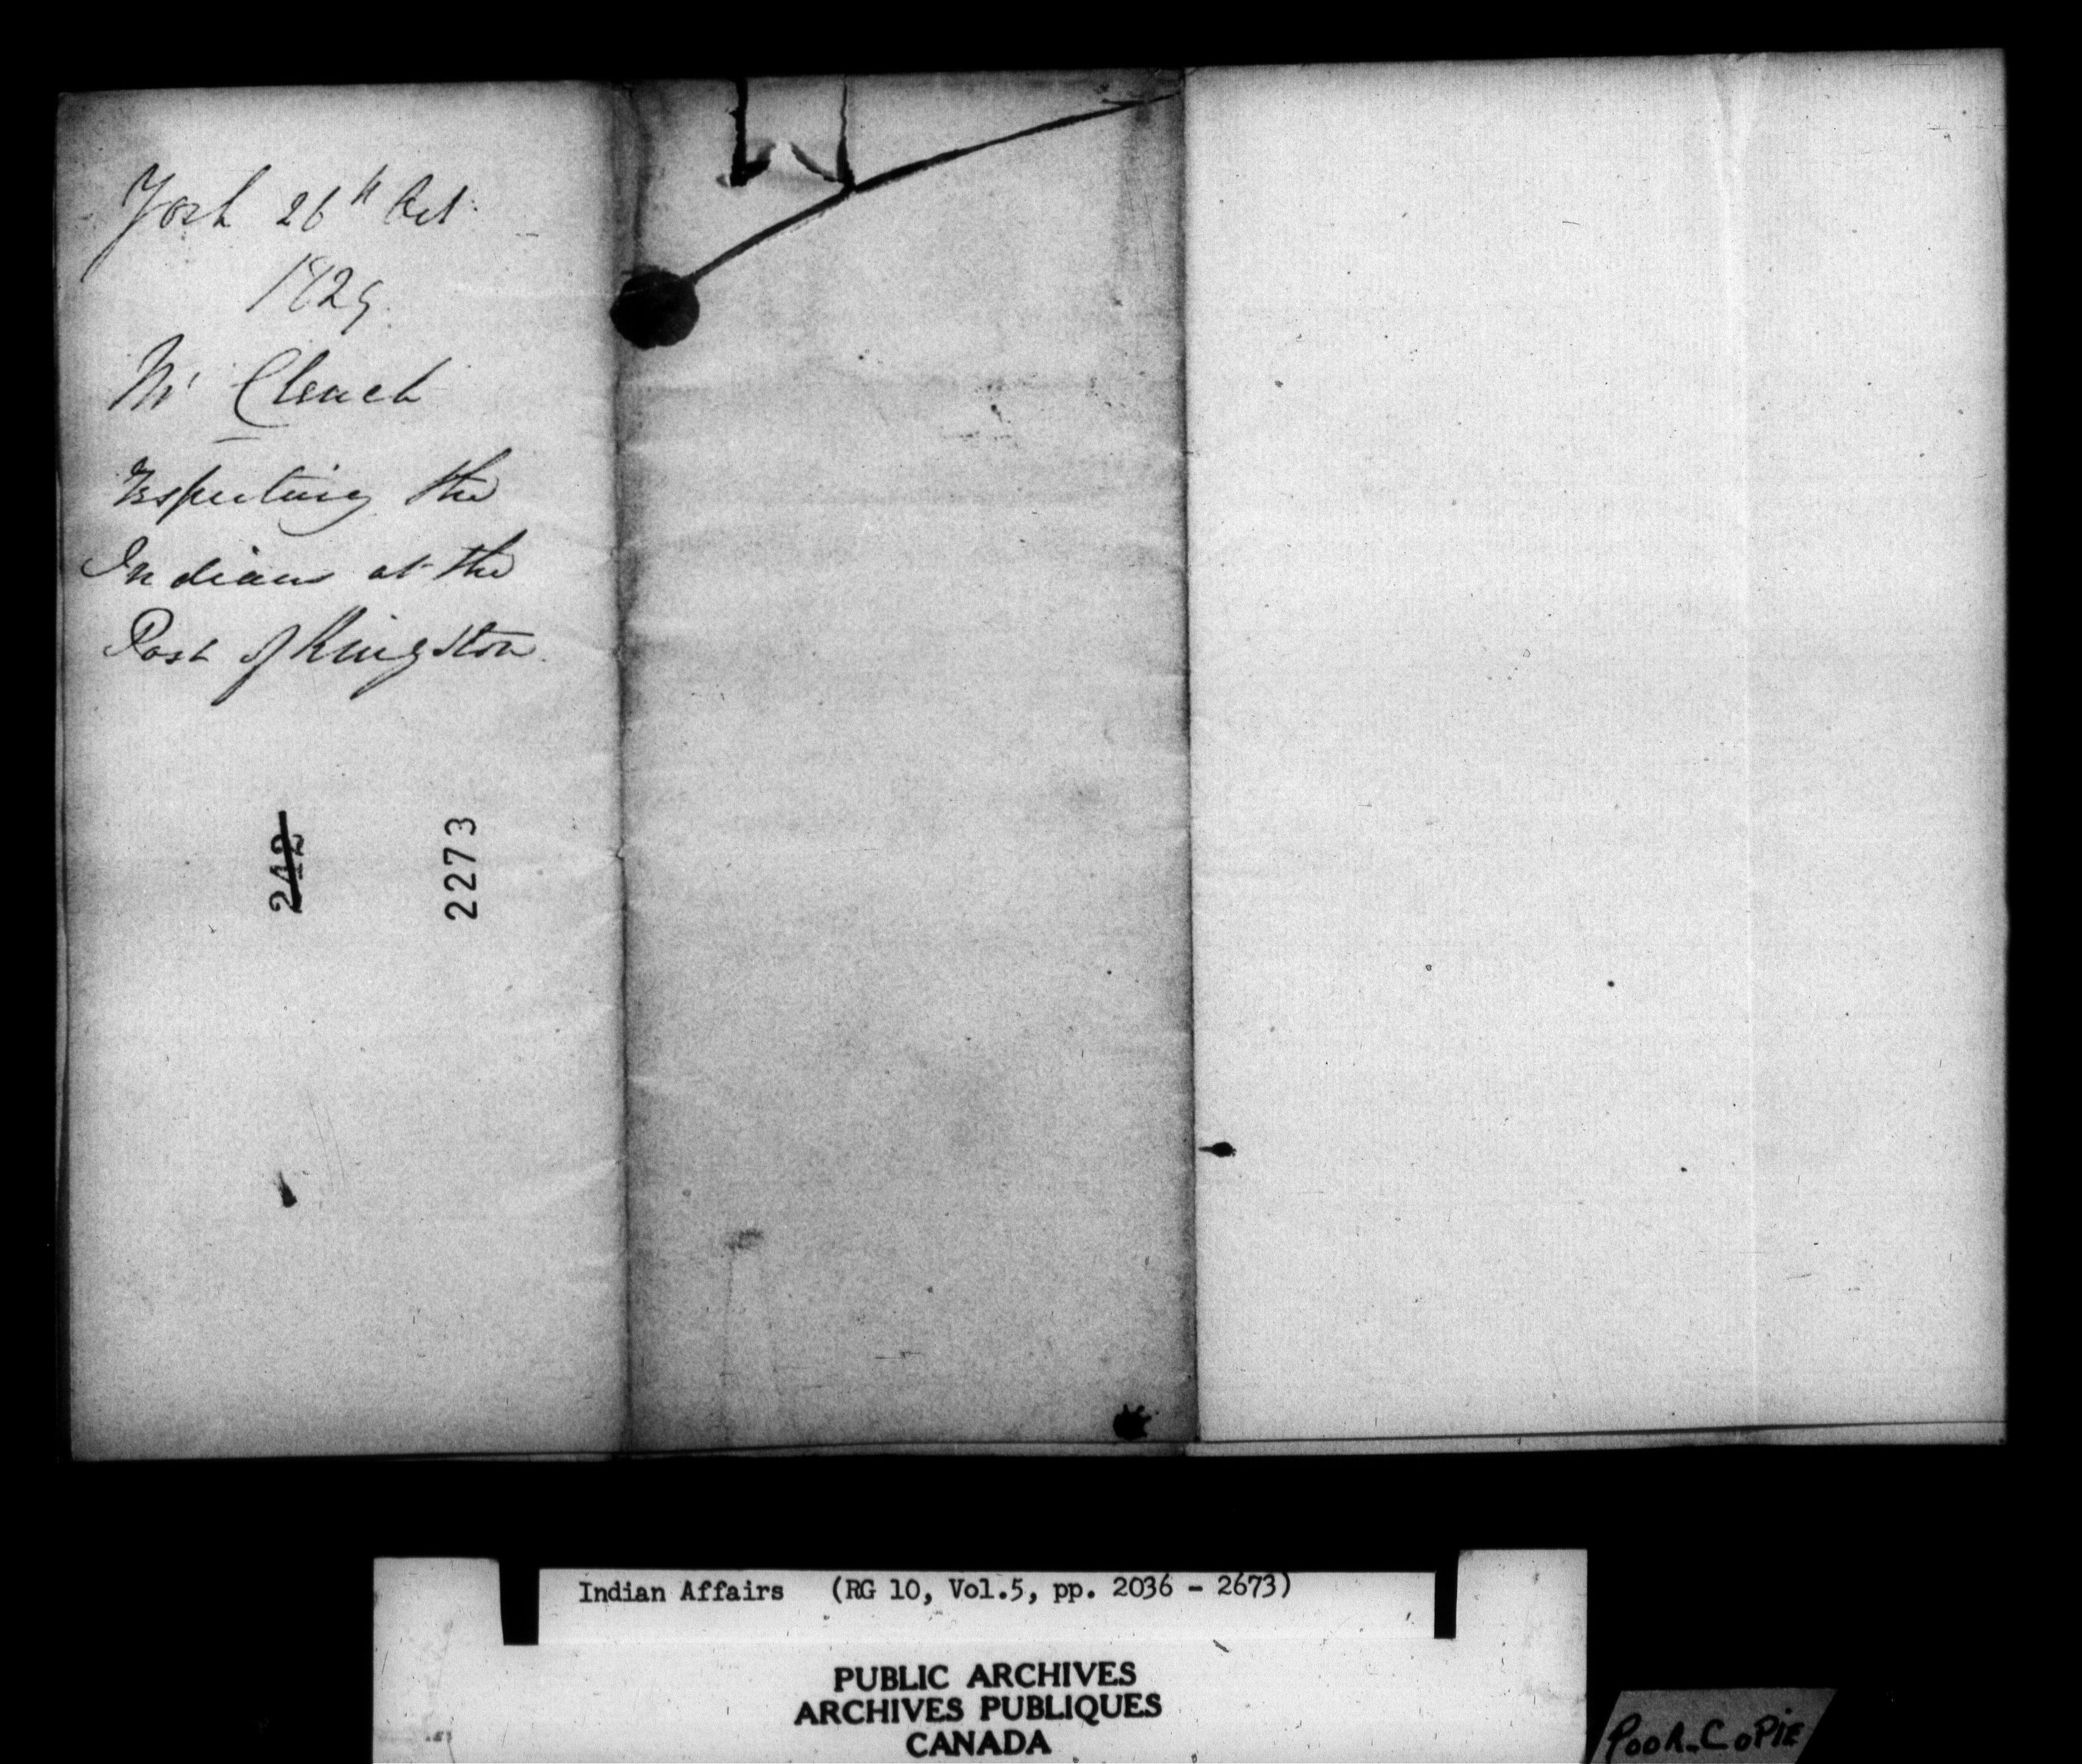 York 26th Oct.
1829.
Mr Clench
respecting the
Indians at the
Post of Kingston.
242
2273
Indian Affairs (RG 10, Vol.5, pp. 2036 - 2673)
PUBLIC ARCHIVES
ARCHIVES PUBLIQUES
CANADA
POOR-COPIE